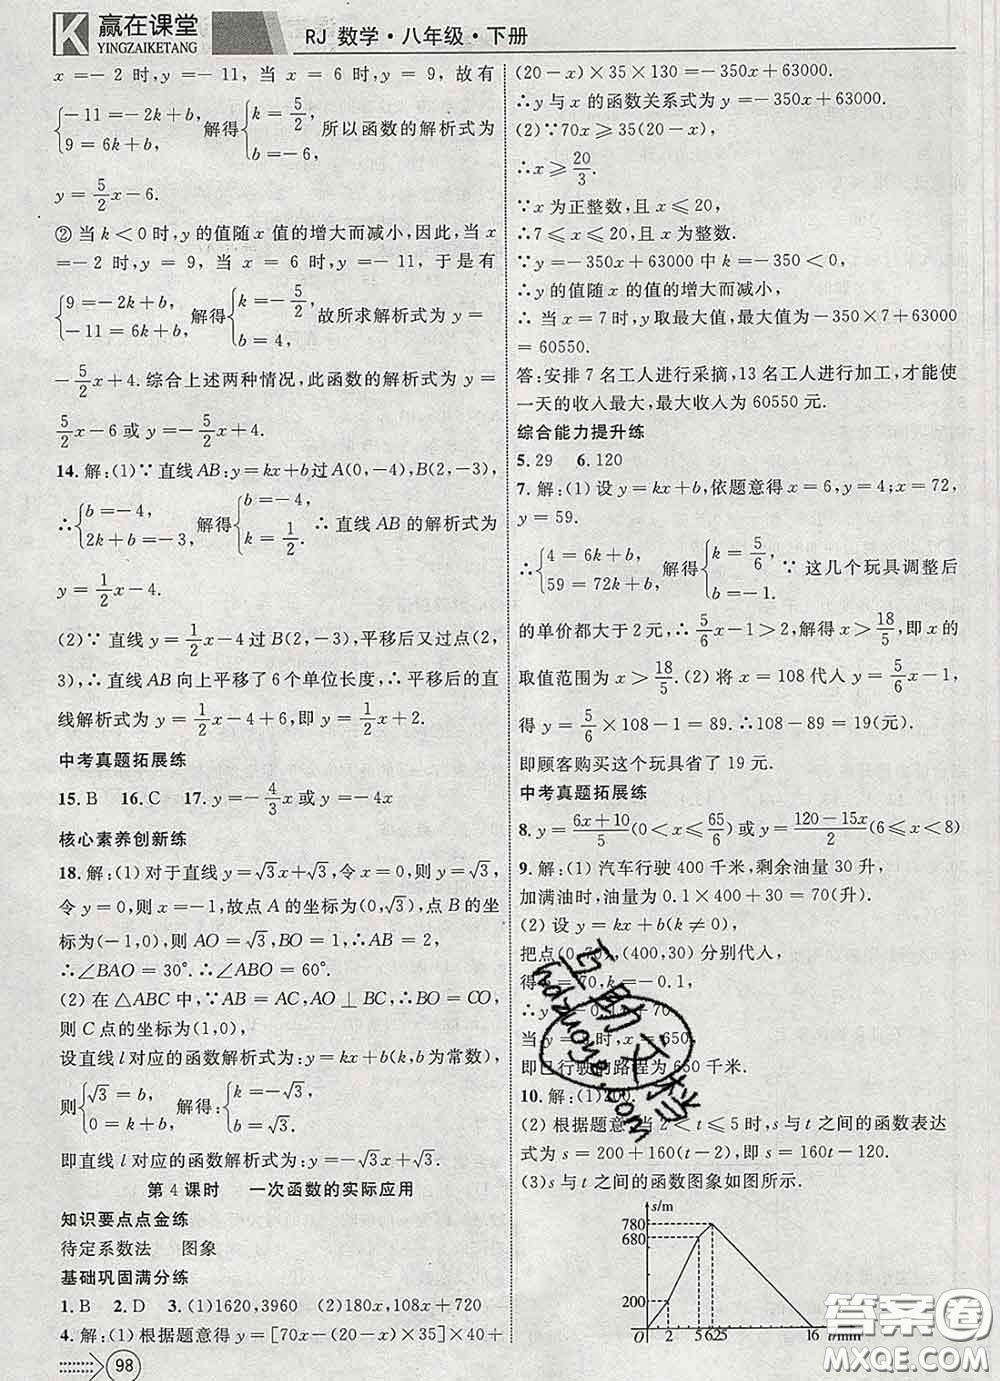 赢在课堂
YINGZAIKETANG
RJ 数学·八年级·下册
x=-2 时,y=-11,当 x=6 时,y=9,故有
{-11=-2k+b, 9=6k+b, 解得{k=5/2, b=-6, 所以函数的解析式为
y=5/2x-6.
②当 k<0 时,y 的值随 x 值的增大而减小,因此,当 x
=-2 时,y=9,当 x=6 时,y=-11,于是有
{9=-2k+b, -11=6k+b, 解得{k=-5/2, b=4, 故所求解析式为 y=
-5/2x+4.综合上述两种情况,此函数的解析式为 y=
5/2x-6 或 y=-5/2x+4.
14.解:(1)∵直线 AB:y=kx+b 过 A(0,-4),B(2,-3),
∴{b=-4, 2k+b=-3, 解得{b=-4, k=1/2. ∴直线 AB 的解析式为
y=1/2x-4.
(2)∵直线 y=1/2x-4 过 B(2,-3),平移后又过点(2,
3),∴直线 AB 向上平移了 6 个单位长度,∴平移后的直
线解析式为 y=1/2x-4+6,即 y=1/2x+2.
中考真题拓展练
15.B 16.C 17.y=-4/3x 或 y=-4x
核心素养创新练
18.解:(1)对于直线 y=√3x+√3,令 x=0,则 y=√3,
令 y=0,则 x=-1,故点 A 的坐标为(0,√3),点 B 的坐
标为(-1,0),则 AO=√3,BO=1,∴AB=2,
∴∠BAO=30°.∴∠ABO=60°.
(2)在△ABC 中,∵AB=AC,AO⊥BC,∴BO=CO,
则 C 点的坐标为(1,0),
设直线 l 对应的函数解析式为:y=kx+b(k,b 为常数),
则{√3=b, 0=k+b, 解得:{k=-√3, b=√3,
即直线 l 对应的函数解析式为:y=-√3x+√3.
第 4 课时 一次函数的实际应用
知识要点点金练
待定系数法 图象
基础巩固满分练
1.B 2.D 3.(1)1620,3960 (2)180x,108x+720
4.解:(1)根据题意得 y=[70x-(20-x)×35]×40+
98
(20-x)×35×130=-350x+63000.
∴y 与 x 的函数关系式为 y=-350x+63000.
(2)∵70x⩾35(20-x),
∴x⩾20/3.
∵x 为正整数,且 x⩽20,
∴7⩽x⩽20,且 x 为整数.
∵y=-350x+63000 中 k=-350<0,
∴y 的值随 x 的值的增大而减小,
∴当 x=7 时,y 取最大值,最大值为-350×7+63000
=60550.
答:安排 7 名工人进行采摘,13 名工人进行加工,才能使
一天的收入最大,最大收入为 60550 元.
综合能力提升练
5.29 6.120
7.解:(1)设 y=kx+b,依题意得 x=6,y=4;x=72,
y=59.
∴{4=6k+b, 59=72k+b, 解得{k=5/6, b=-1. ∵这几个玩具调整后
的单价都大于 2 元,∴5/6x-1>2,解得 x>18/5,即 x 的
取值范围为 x>18/5.(2)将 x=108 代人 y=5/6x-1,
得 y=5/6×108-1=89.∴108-89=19(元).
即顾客购买这个玩具省了 19 元.
中考真题拓展练
8.y=6x+10/5(0<x⩽65/6)或 y=120-15x/2(6⩽x<8)
9.解:(1)汽车行驶 400 千米,剩余油量 30 升,
加满油时,油量为 0.1×400+30=70(升).
(2)设 y=kx+b(k≠0),
把点(0,70),(400,30)分别代人,
得 b=70,k=-0.1,
∴y=-0.1x+70
当 y=5 时,x=650
即已行驶的路程为 650 千米.
10.解:(1)200.
(2)根据题意,当 2<t⩽5 时,s 与 t 之间的函数表达
式为 s=200+160(t-2)=160t-120.
(3)s 与 t 之间的函数图象如图所示.
s/m
780
680
200
0 2 5 6.25 16 t/min
互助文档
hdzuoye.com
答案圈
MXQE.COM